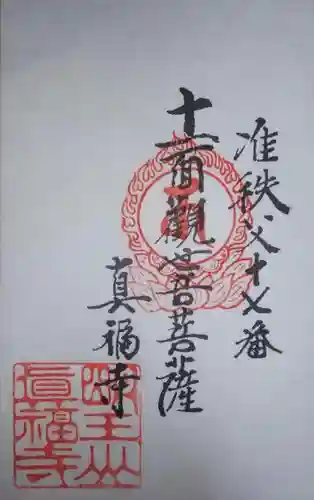 准秩父十七番
十一面觀世音菩薩
真福寺
眞福寺